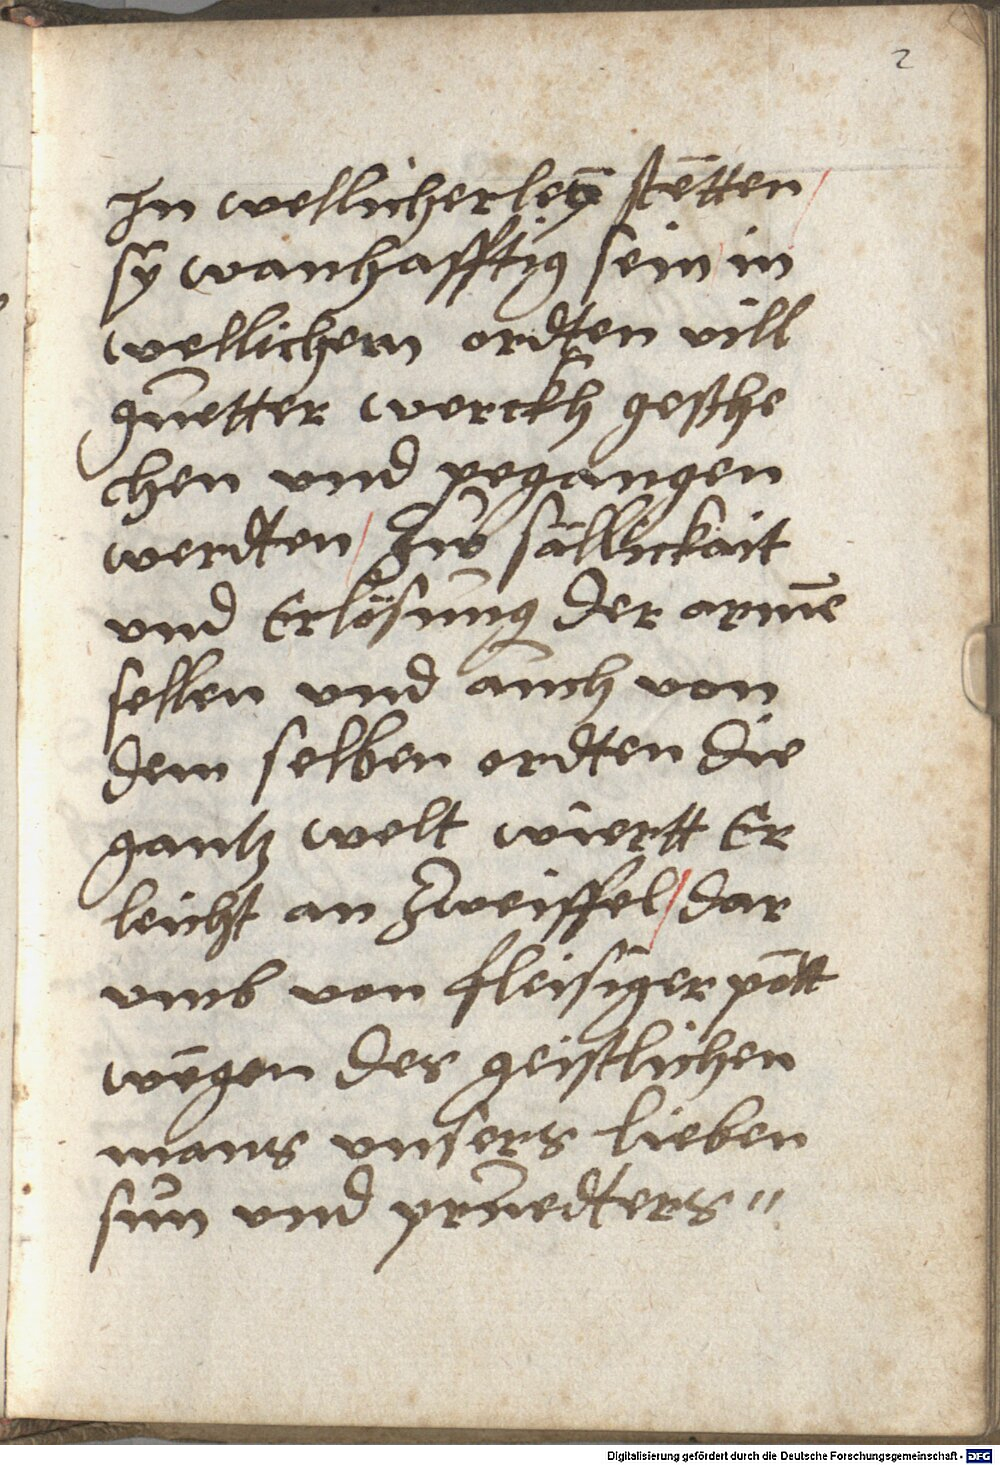 2
In wellicherleÿ stetten /
sÿ wanhafftig sein in
wellichem ordten vill
guetter werckh geßhe
chen vnd pegangen
werdten / Zw sällickait
vnd Erlösung der arme
sellen vnd auch von
dem selben ordten die
gantz welt wiertt Er
leicht an Zweiffel / dar
vmb von fleisiger pett
wegen des geistlichen
mans vnsers lieben
sun vnd pruedters "
Digitalisierung gefördert durch die Deutsche Forschungsgemeinschaft - DFG